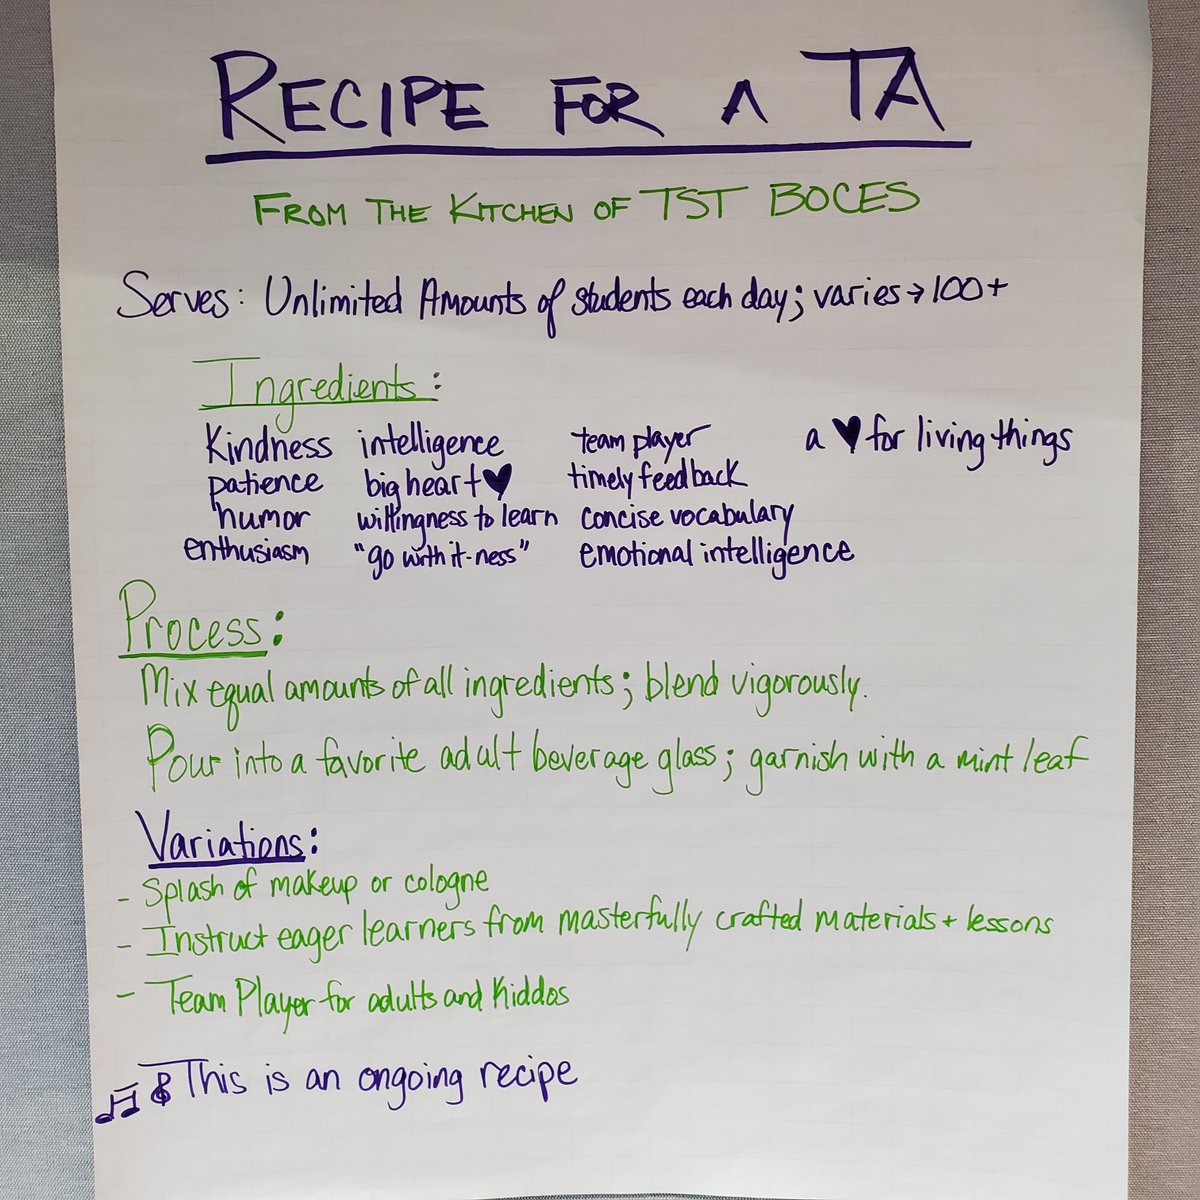 RECIPE FOR A TA
FROM THE KITCHEN OF TST BOCES
Serves: Unlimited Amounts of students each day; varies → 100+
Ingredients:
Kindness intelligence team player a ♥ for living things
patience big heart ♥ timely feedback
humor willingness to learn concise vocabulary
enthusiasm "go with it-ness" emotional intelligence
Process:
Mix equal amounts of all ingredients; blend vigorously.
Pour into a favorite adult beverage glass; garnish with a mint leaf
Variations:
- Splash of makeup or cologne
- Instruct eager learners from masterfully crafted materials + lessons
- Team Player for adults and Kiddos
This is an ongoing recipe